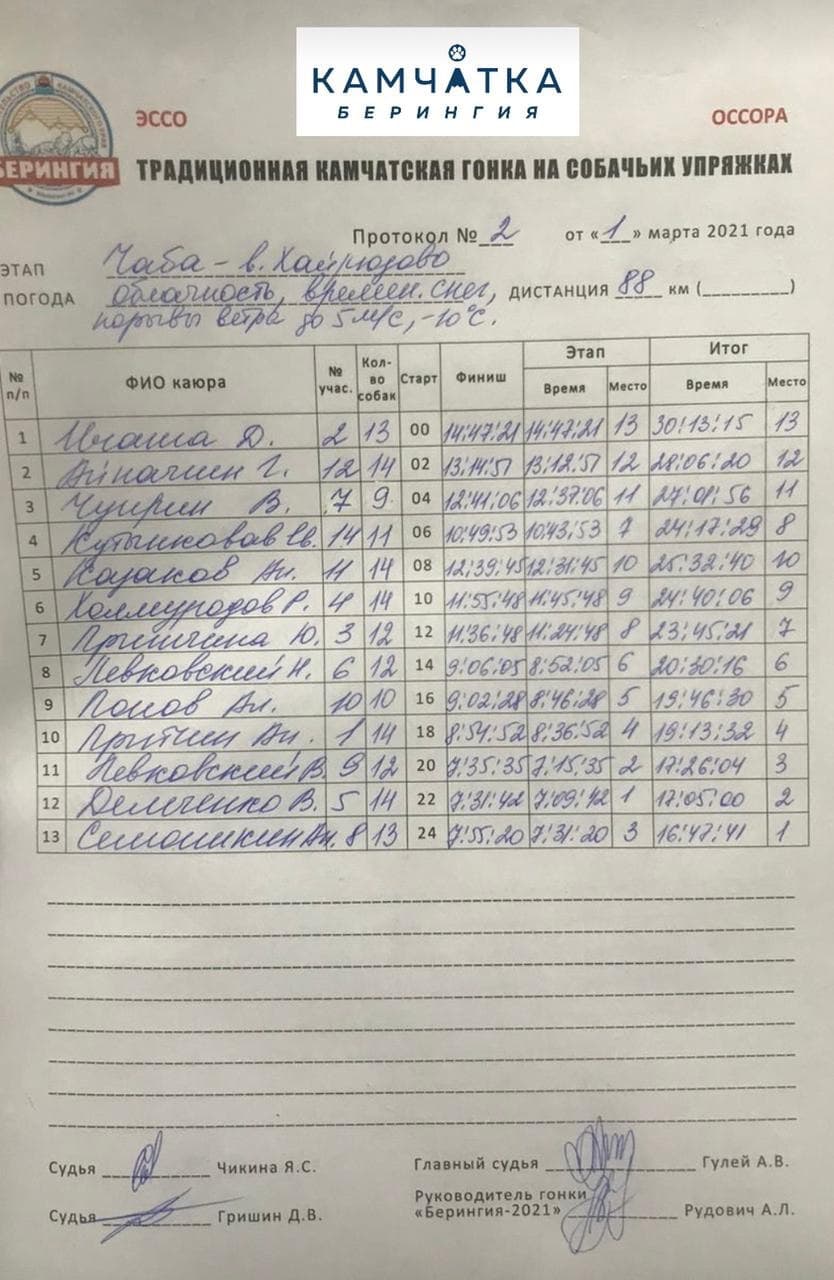 КАМЧАТКА
БЕРИНГИЯ
ЭССО ОССОРА
БЕРИНГИЯ
ТРАДИЦИОННАЯ КАМЧАТСКАЯ ГОНКА НА СОБАЧЬИХ УПРЯЖКАХ
Протокол № 2 от «1» марта 2021 года
ЭТАП Чаба - в. Хайрюзово
ПОГОДА облачность, времен. снег, ДИСТАНЦИЯ 88 км (_________)
порывы ветра до 5 м/с, -10°С.
№ п/п ФИО каюра № учас. Кол-во собак Старт Финиш Этап Время Место Итог Время Место
1 Ивашка Д. 2 13 00 14:47:21 14:47:21 13 30:13:15 13
2 Айначин Г. 12 14 02 13:14:51 13:12:51 12 28:06:20 12
3 Чуприн В. 7 9 04 12:41:06 12:37:06 11 27:01:56 11
4 Кутынковав Ев. 14 11 06 10:49:53 10:43:53 7 24:17:29 8
5 Казаков Ан. 11 14 08 12:39:45 12:31:45 10 25:32:40 10
6 Холмуродов Р. 4 14 10 11:55:48 11:45:48 9 24:40:06 9
7 Прытчина Ю. 3 12 12 11:36:48 11:24:48 8 23:45:21 7
8 Левковский Н. 6 12 14 9:06:05 8:52:05 6 20:30:16 6
9 Попов Ал. 10 10 16 9:02:28 8:46:28 5 19:46:30 5
10 Притчин Ан. 1 14 18 8:54:52 8:36:52 4 19:13:32 4
11 Левковский В. 9 12 20 7:35:35 7:15:35 2 17:26:04 3
12 Демченко В. 5 14 22 7:31:42 7:09:42 1 17:05:00 2
13 Семашкин Ан. 8 13 24 7:55:20 7:31:20 3 16:47:41 1
Судья Чикина Я.С. Главный судья Гулей А.В.
Судья Гришин Д.В. Руководитель гонки «Берингия-2021» Рудович А.Л.